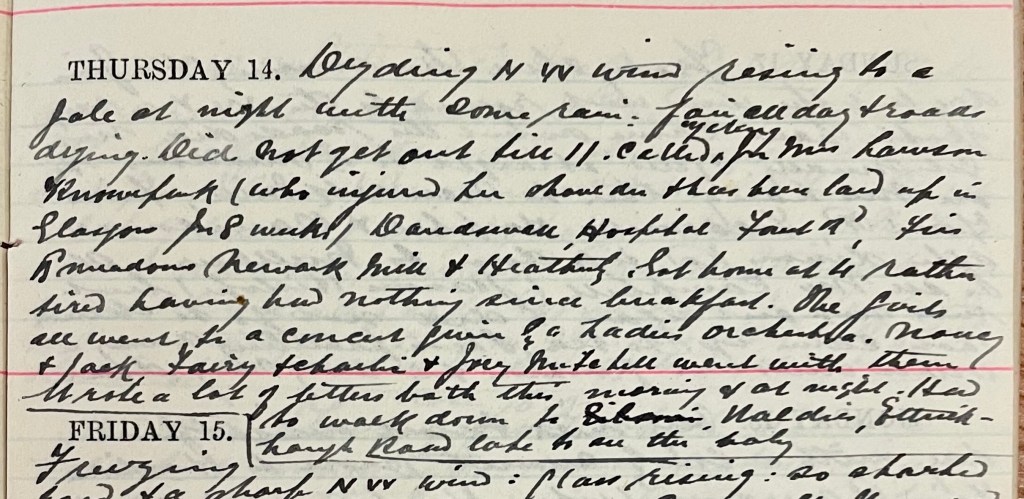 THURSDAY 14. Drying N W wind rising to a
gale at night with some rain. Fair all day & roads
drying. Did not get out till 11. Called for Mrs Lawson
Knowepark (who injured her shoulder & has been laid up in
Glasgow for 8 weeks) Hospital Firs
Newark Mill & Heatherly. Got home at 4 rather
tired having had nothing since breakfast. The Girls
all went to a concert given by a Ladies orchestra. Nancy
& Jack Fairy & Charlie & Joey Mitchell went with them
Wrote a lot of letters both this morning & at night. Had
to walk down to Haldies, Ettrick-
haugh Road late to see the baby
FRIDAY 15.
Freezing
hard & a sharp N W wind: Glass rising: so started